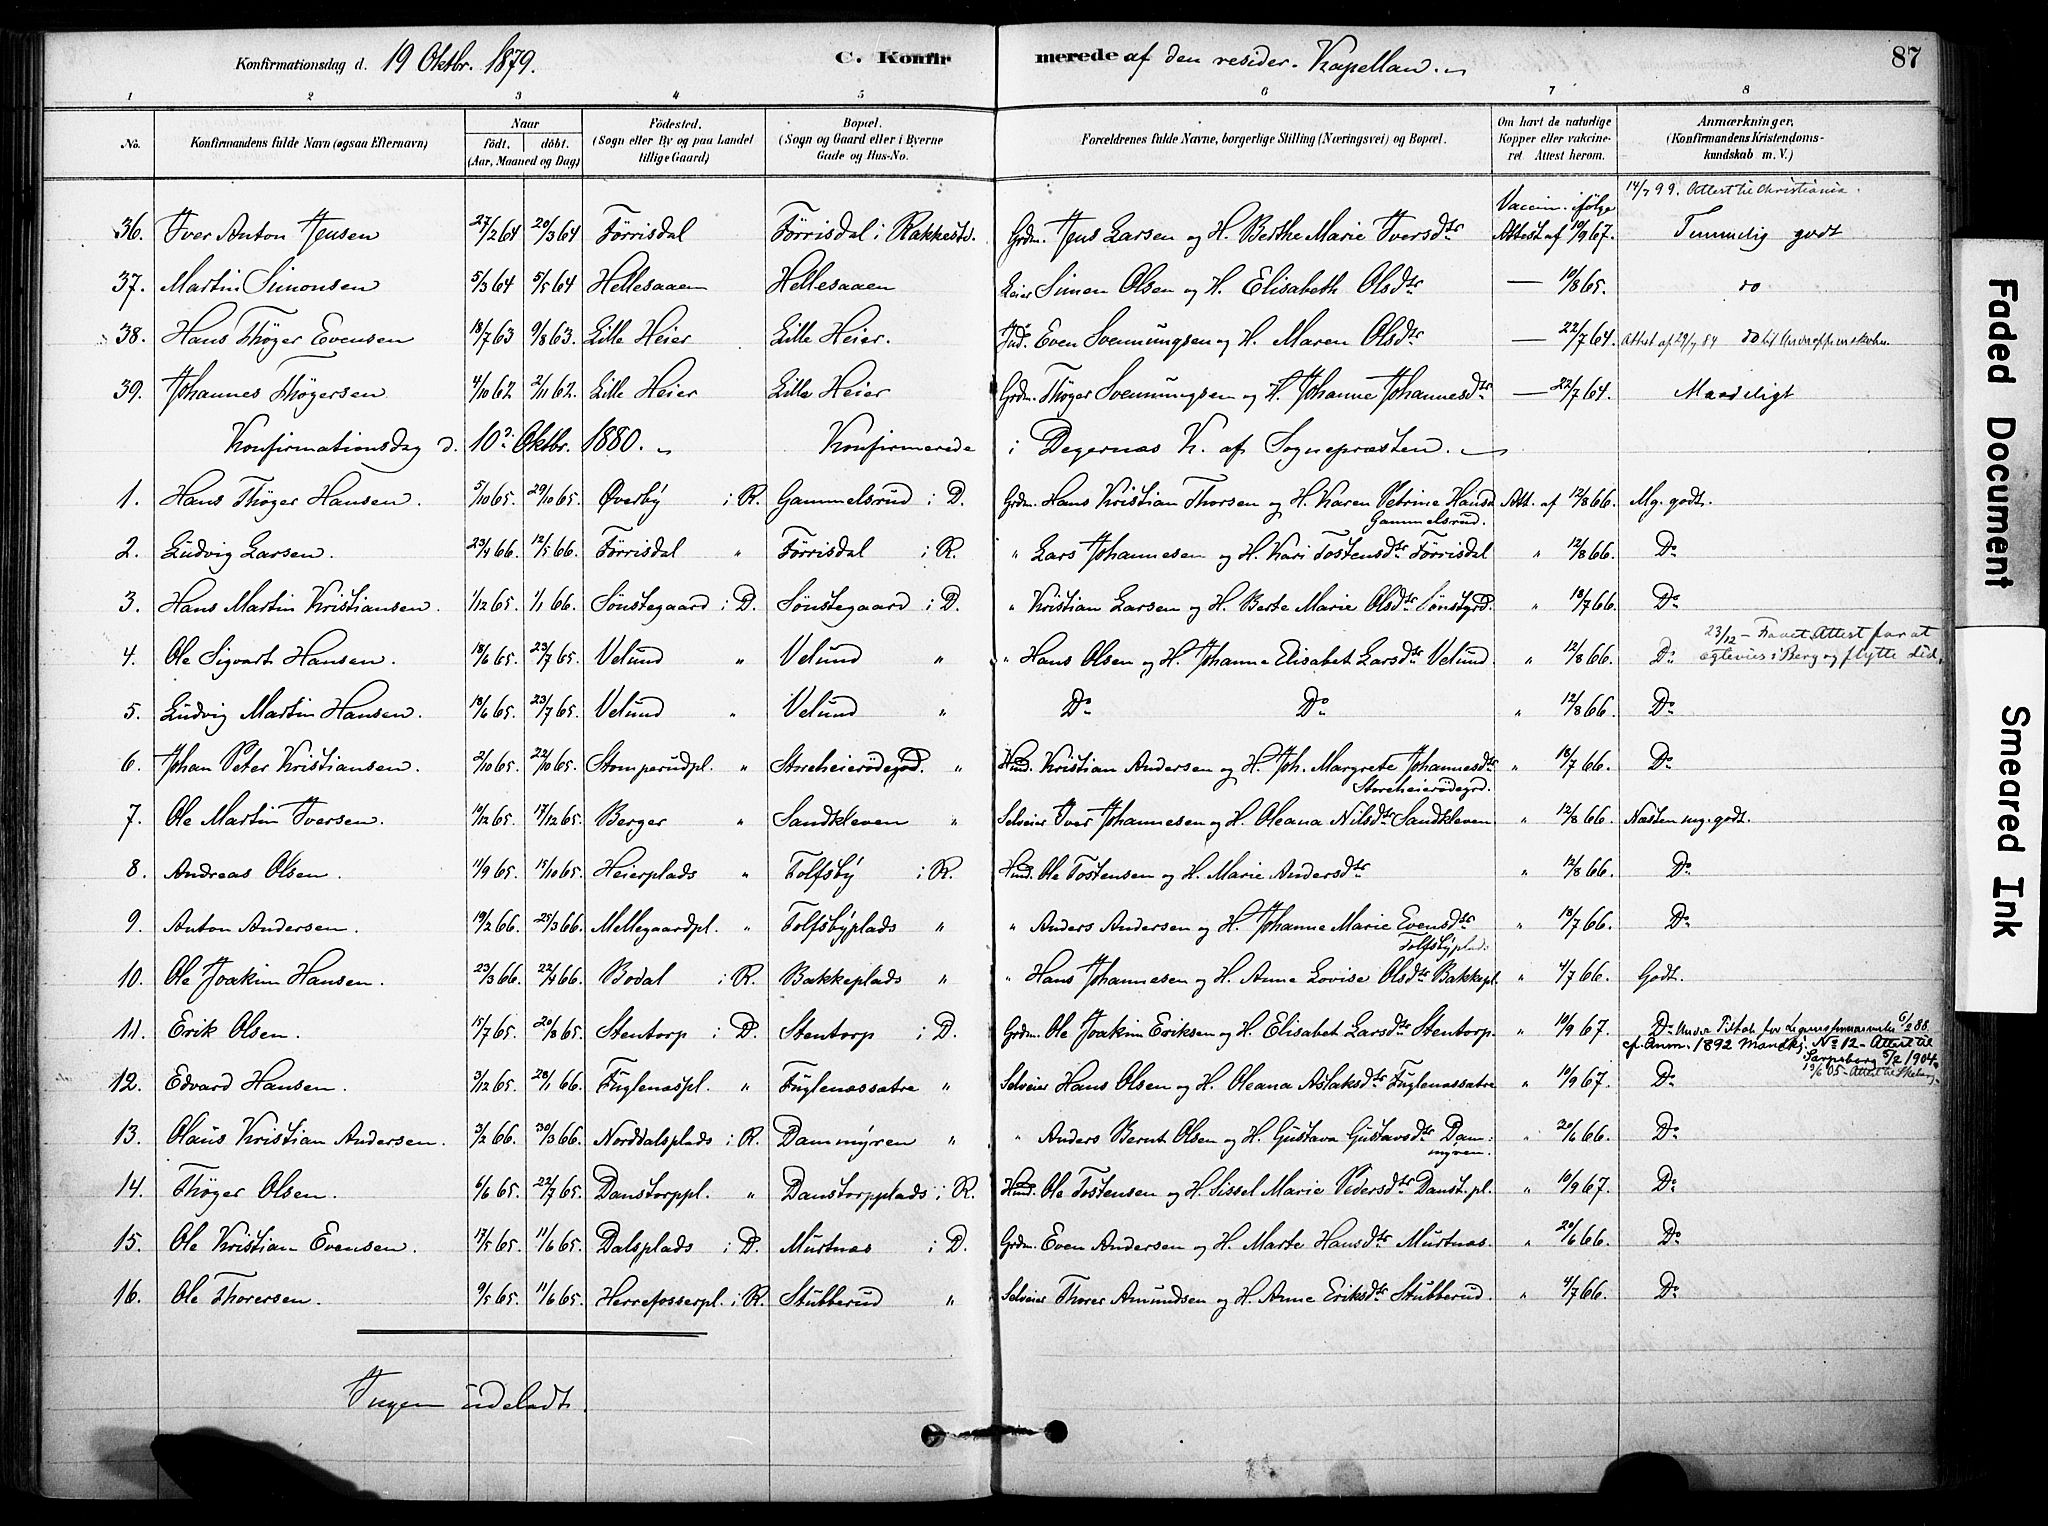 Konfirmationsdag d. 19 Oktbr. 1879. C. Konfirmerede af den resider. Kapellan. 87
1 2 3 4 5 6 7 8
No. Konfirmandens fulde Navn (ogsaa Efternavn) Naar født. døbt. (Aar, Maaned og Dag) Fødested. (Sogn eller By og paa Landet tillige Gaard) Bopæl. (Sogn og Gaard eller i Byerne Gade og Hus-No. Forældrenes fulde Navne, borgerlige Stilling (Næringsvei) og Bopæl. Om havt de naturlige Kopper eller vaccineret. Attest herom. Anmærkninger. (Konfirmandens Kristendomskundskab m. V.)
14/7 99. Attest til Christiania.
36. Iver Anton Jensen 27/2 64 20/3 64 Førrisdal Førrisdal i Rakkestd. Grdm. Jens Larsen og H. Berthe Marie Iversdtr Vaccin. ifølge Attest af 10/9 67. Temmelig godt
37. Martin Simonsen 5/3 64 5/5 64 Hellesaaen Hellesaaen Leier Simen Olsen og H. Elisabeth Olsdtr — 10/8 65. do
38. Hans Thøger Evensen 18/7 63 9/8 63. Lille Heier Lille Heier. Ind. Even Svennungsen og H. Maren Olsdtr — 22/7 64. Attest af 29/7 84 do til
39. Johannes Thøgersen 4/10 62 2/11 62. Lille Heier Lille Heier Grdm. Thøger Svennungsen og H. Johanne Johannesdtr — 22/7 64. Maadeligt
Konfirmationsdag d. 10de Oktbr. 1880. Konfirmerede i Degernæs K. af Sognepræsten.
1. Hans Thøger Hansen. 5/10 65. 29/10 65. Øverby i R. Gammelsrud i D. Grdm. Hans Kristian Thorsen og H. Karen Petrine Hansd Gammelsrud. Att. af 12/8 66. Mg. godt.
2. Ludvig Larsen. 23/4 66. 12/5 66. Førrisdal " Førrisdal i R. " Lars Johannesen og H. Kari Tostensdtr Førrisdal " 12/8 66. Do
3. Hans Martin Kristiansen. 1/12 65. 1/1 66. Sønstegaard i D. Sønstegaard i D. " Kristian Larsen og H. Berte Marie Olsdtr Sønstgrd. " 18/7 66. Do
4. Ole Sigvart Hansen. 18/6 65. 23/7 65. Velund " Velund " " Hans Olsen og H. Johanne Elisabet Larsdtr Velund. " 12/8 66. Do 23/12 – Faaet Attest for at egtevies i Berg og flytte did.
5. Ludvig Martin Hansen. 18/6 65. 23/7 65. Velund " Velund " Do Do " 12/8 66. Do
6. Johan Peter Kristiansen. 2/10 65. 22/10 65. Stomperudpl. " Storeheierødegrd. " Husd. Kristian Andersen og H. Joh. Margrete Johannesdtr Storeheierødegrd. " 18/7 66. Do
7. Ole Martin Iversen. 10/12 65. 17/12 65. Berger " Sandkleven " Selveier Iver Johannesen og H. Oleana Nilsdtr Sandkleven " 12/8 66. Næsten mg. godt.
8. Andreas Olsen. 11/9 65. 15/10 65. Heierplads " Tolfsby i R. Husd. Ole Tostensen og H. Marie Andersdtr " 12/8 66. Do
9. Anton Andersen. 19/2 66. 25/3 66. Mellegaardpl. " Tolfsbyplads " " Anders Andersen og H. Johanne Marie Evensdtr Tolfsbyplad. " 18/7 66. Do
10. Ole Joakim Hansen. 23/3 66. 22/4 66. Bodal i R. Bakkeplads " " Hans Johannesen og H. Anne Lovise Olsdtr Bakkepl. " 4/7 66. Godt.
11. Erik Olsen. 15/7 65. 20/8 65. Stentorp i D. Stentorp i D. Grdm. Ole Joakim Eriksen og H. Elisabet Larsdtr Stentorp. " 10/9 67. Do 6/2 88. cf. Anm. 1892 Mandkj. No 12 – Attest til Sarpsborg 5/2 1904.
12. Edvard Hansen. 3/12 65. 28/1 66. Fuglenæspl. " Fuglenæssætre " Selveier Hans Olsen og H. Oleana Aslaksdtr Fuglenæssætre " 10/9 67. Do 19/6 05 – Attest til
13. Olaus Kristian Andersen. 3/2 66. 30/3 66. Norddalsplads i R. Dammyren " " Anders Bernt Olsen og H. Gustava Gustavsdtr Dammyren. " 20/6 66. Do
14. Thøger Olsen. 6/6 65. 22/7 65. Danstorppl. " Danstorpplads i R. Husd. Ole Tostensen og H. Sissel Marie Pedersdtr Danst.pl. " 10/9 67. Do
15. Ole Kristian Evensen. 17/5 65. 11/6 65. Dalsplads i D. Murtnæs i D. Grdm. Even Andersen og H. Marte Hansdtr Murtnæs. " 20/6 66. Do
16. Ole Thorersen. 9/5 65. 11/6 65. Herrefosserpl. i R. Stubberud " Selveier Thorer Amundsen og H. Anne Eriksdtr Stubberud. " 4/7 66. Do
Ingen udeladt.
Faded Document
Smeared Ink